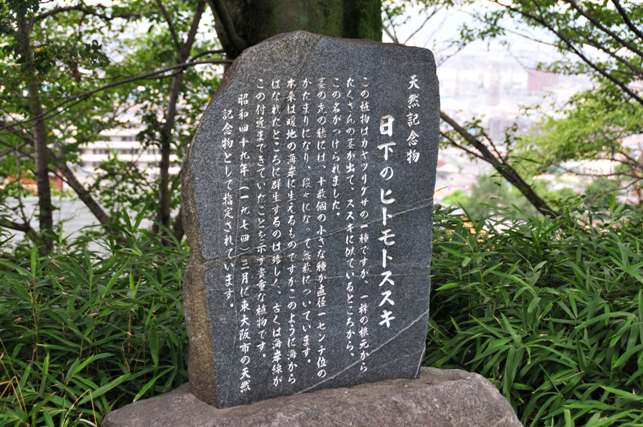 天然記念物
日下のヒトモトススキ
この植物はカヤツリグサの一種ですが、一株の根元から
たくさんの茎が出て、ススキに似ているところから、
この名がつけられました。
茎の先の穂には、十数個の小さな種が直径一センチ位の
かたまりになり、段々になって無数についています。
本来は暖地の海岸に生えるものですが、このように海から
はなれたところに群生するのは珍しく、古くは海岸線が
この付近まできていたことを示す貴重な植物です。
昭和四十九年(一九七四)三月に東大阪市の天然
記念物として指定されています。